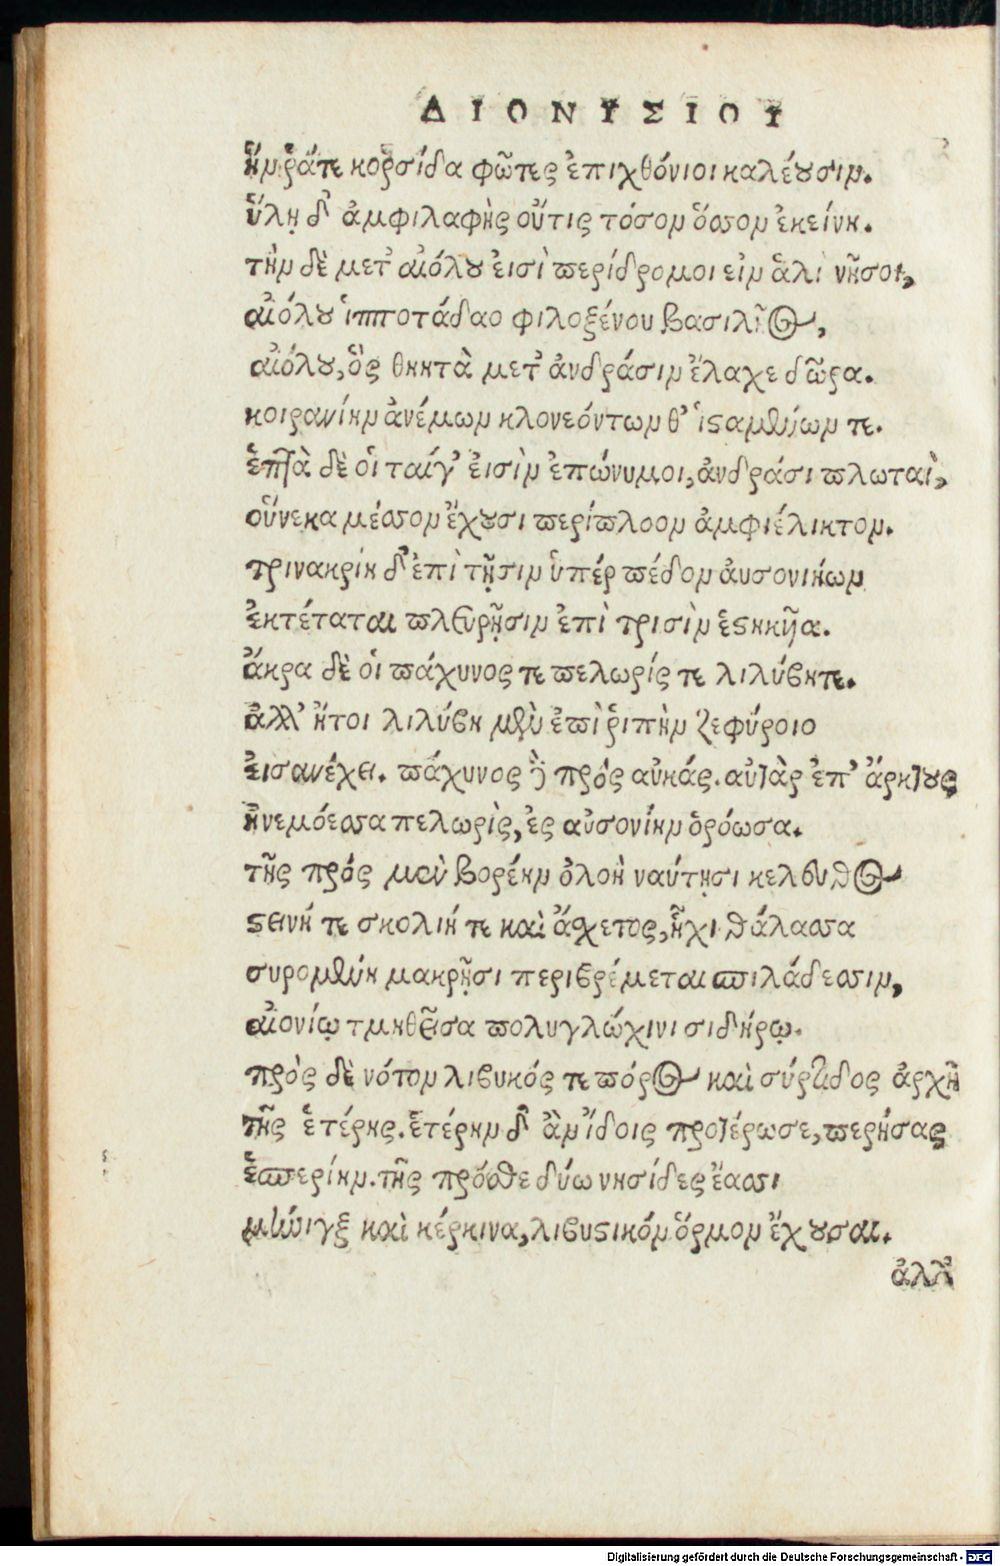 ΔΙΟΝΥΣΙΟΥ
ἥν ῥά τε κορσίδα φῶτες ἐπιχθόνιοι καλέουσιν.
ὕλῃ δ' ἀμφιλαφὴς οὔτις τόσον ὅσσον ἐκείνη.
τὴν δὲ μετ' αἰόλου εἰσὶ περίδρομοι εἰν ἁλὶ νῆσοι,
αἰόλου ἱπποτάδαο φιλοξένου βασιλῆος,
αἰόλου, ὃς θηητὰ μετ' ἀνδράσιν ἔλαχε δῶρα.
κοιρανίην ἀνέμων κλονεόντων θ' ἱσταμένων τε.
ἑπτὰ δὲ οἱ ταίγ' εἰσὶν ἐπώνυμοι, ἀνδράσι πλωταὶ,
οὕνεκα μέσσον ἔχουσι περίπλοον ἀμφιέλικτον.
τρινακρίη δ' ἐπὶ τῇσιν ὑπέρ πέδον ἀυσονιήων
ἐκτέταται πλευρῇσιν ἐπὶ τρισὶν ἑστηκῆα.
ἄκρα δὲ οἱ πάχυνος τε πελωρίς τε λιλύβη τε.
ἀλλ' ἤτοι λιλύβη μὲν ἐπὶ ῥιπὴν ζεφύροιο
εἰσανέχει. πάχυνος δὲ πρός αὐκάς. αὐτὰρ ἐπ' ἄρκτους
ἠνεμόεσσα πελωρὶς, ἐς αὐσονίην ὁρόωσα.
τῆς πρός μὲν βορέην ὀλοὴ ναύτῃσι κελευθος
στεινή τε σκολιή τε καὶ ἄσχετος, ἧχι θάλασσα
συρομένη μακρῇσι περιβρέμεται σπιλάδεσσιν,
αἰονίῳ τμηθεῖσα πολυγλώχινι σιδήρῳ.
πρὸς δὲ νότον λιβυκός τε πόρος καὶ σύρτιδος ἀρχὴ
τῆς ἑτέρης. ἑτέρην δ' ἂν ἴδοις προτέρωσε, περήσας
ἑσπερίην. τῆς πρόσθε δύω νησίδες ἔασσι
μῆνιγξ καὶ κέρκινα, λιβυστικόν ὅρμον ἔχουσαι.
ἀλλ'
Digitalisierung gefördert durch die Deutsche Forschungsgemeinschaft - DFG